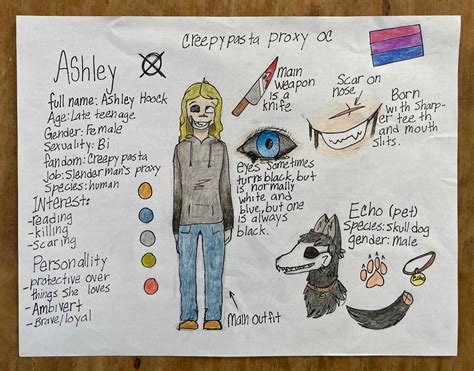 Creepypasta proxy oc
Ashley
full name: Ashley Hoock
Age: Late teenage
Gender: Female
Sexuality: Bi
fandom: Creepy pasta
Job: Slenderman's proxy
Species: human
Interest:
-reading
-killing
-scaring
Personallity
-protective over
things She loves
-Ambivert
-Brave/loyal
Main
weapon
is a
knife
Scar on
nose
Born
with Sharp-
er teeth
and mouth
slits.
eyes Sometimes
turns black, but
is normally
white and
blue, but one
is always
black.
Main outfit
Echo (pet)
Species: skull dog
gender: male